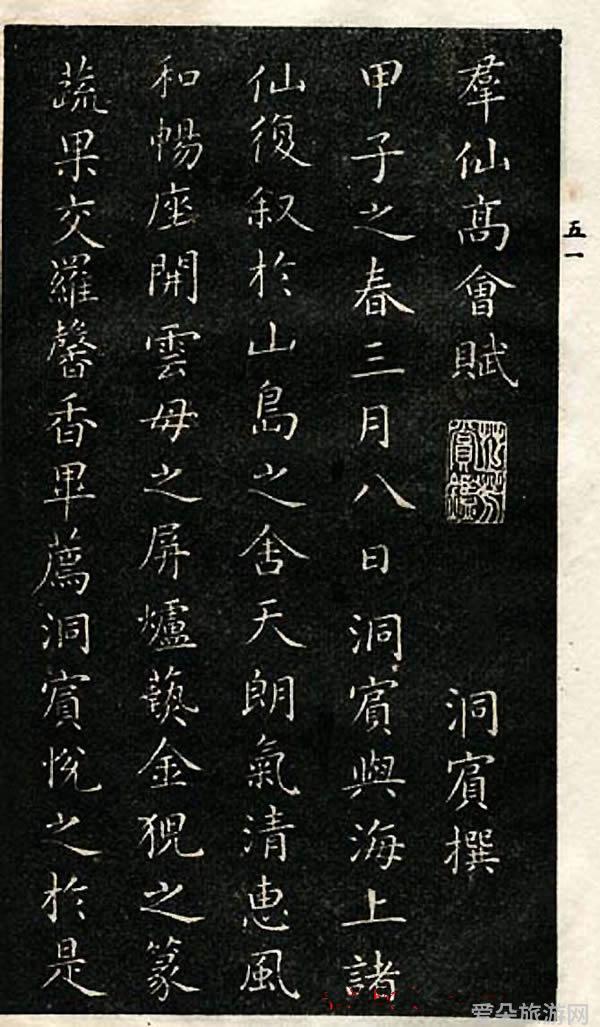 羣仙高會賦 洞賓撰
甲子之春三月八日洞賓與海上諸
仙復叙於山島之舍天朗氣清惠風
和暢座開雲母之屏爐藝金猊之篆
蔬果交羅馨香畢薦洞賓悅之於是
五一
爱朵旅游网